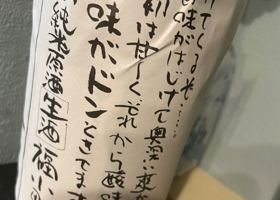 けてくるぞ……
味がはじけて奥深い
初は甘く…それから酸味
味がドンときてます
純米原酒生酒 福小